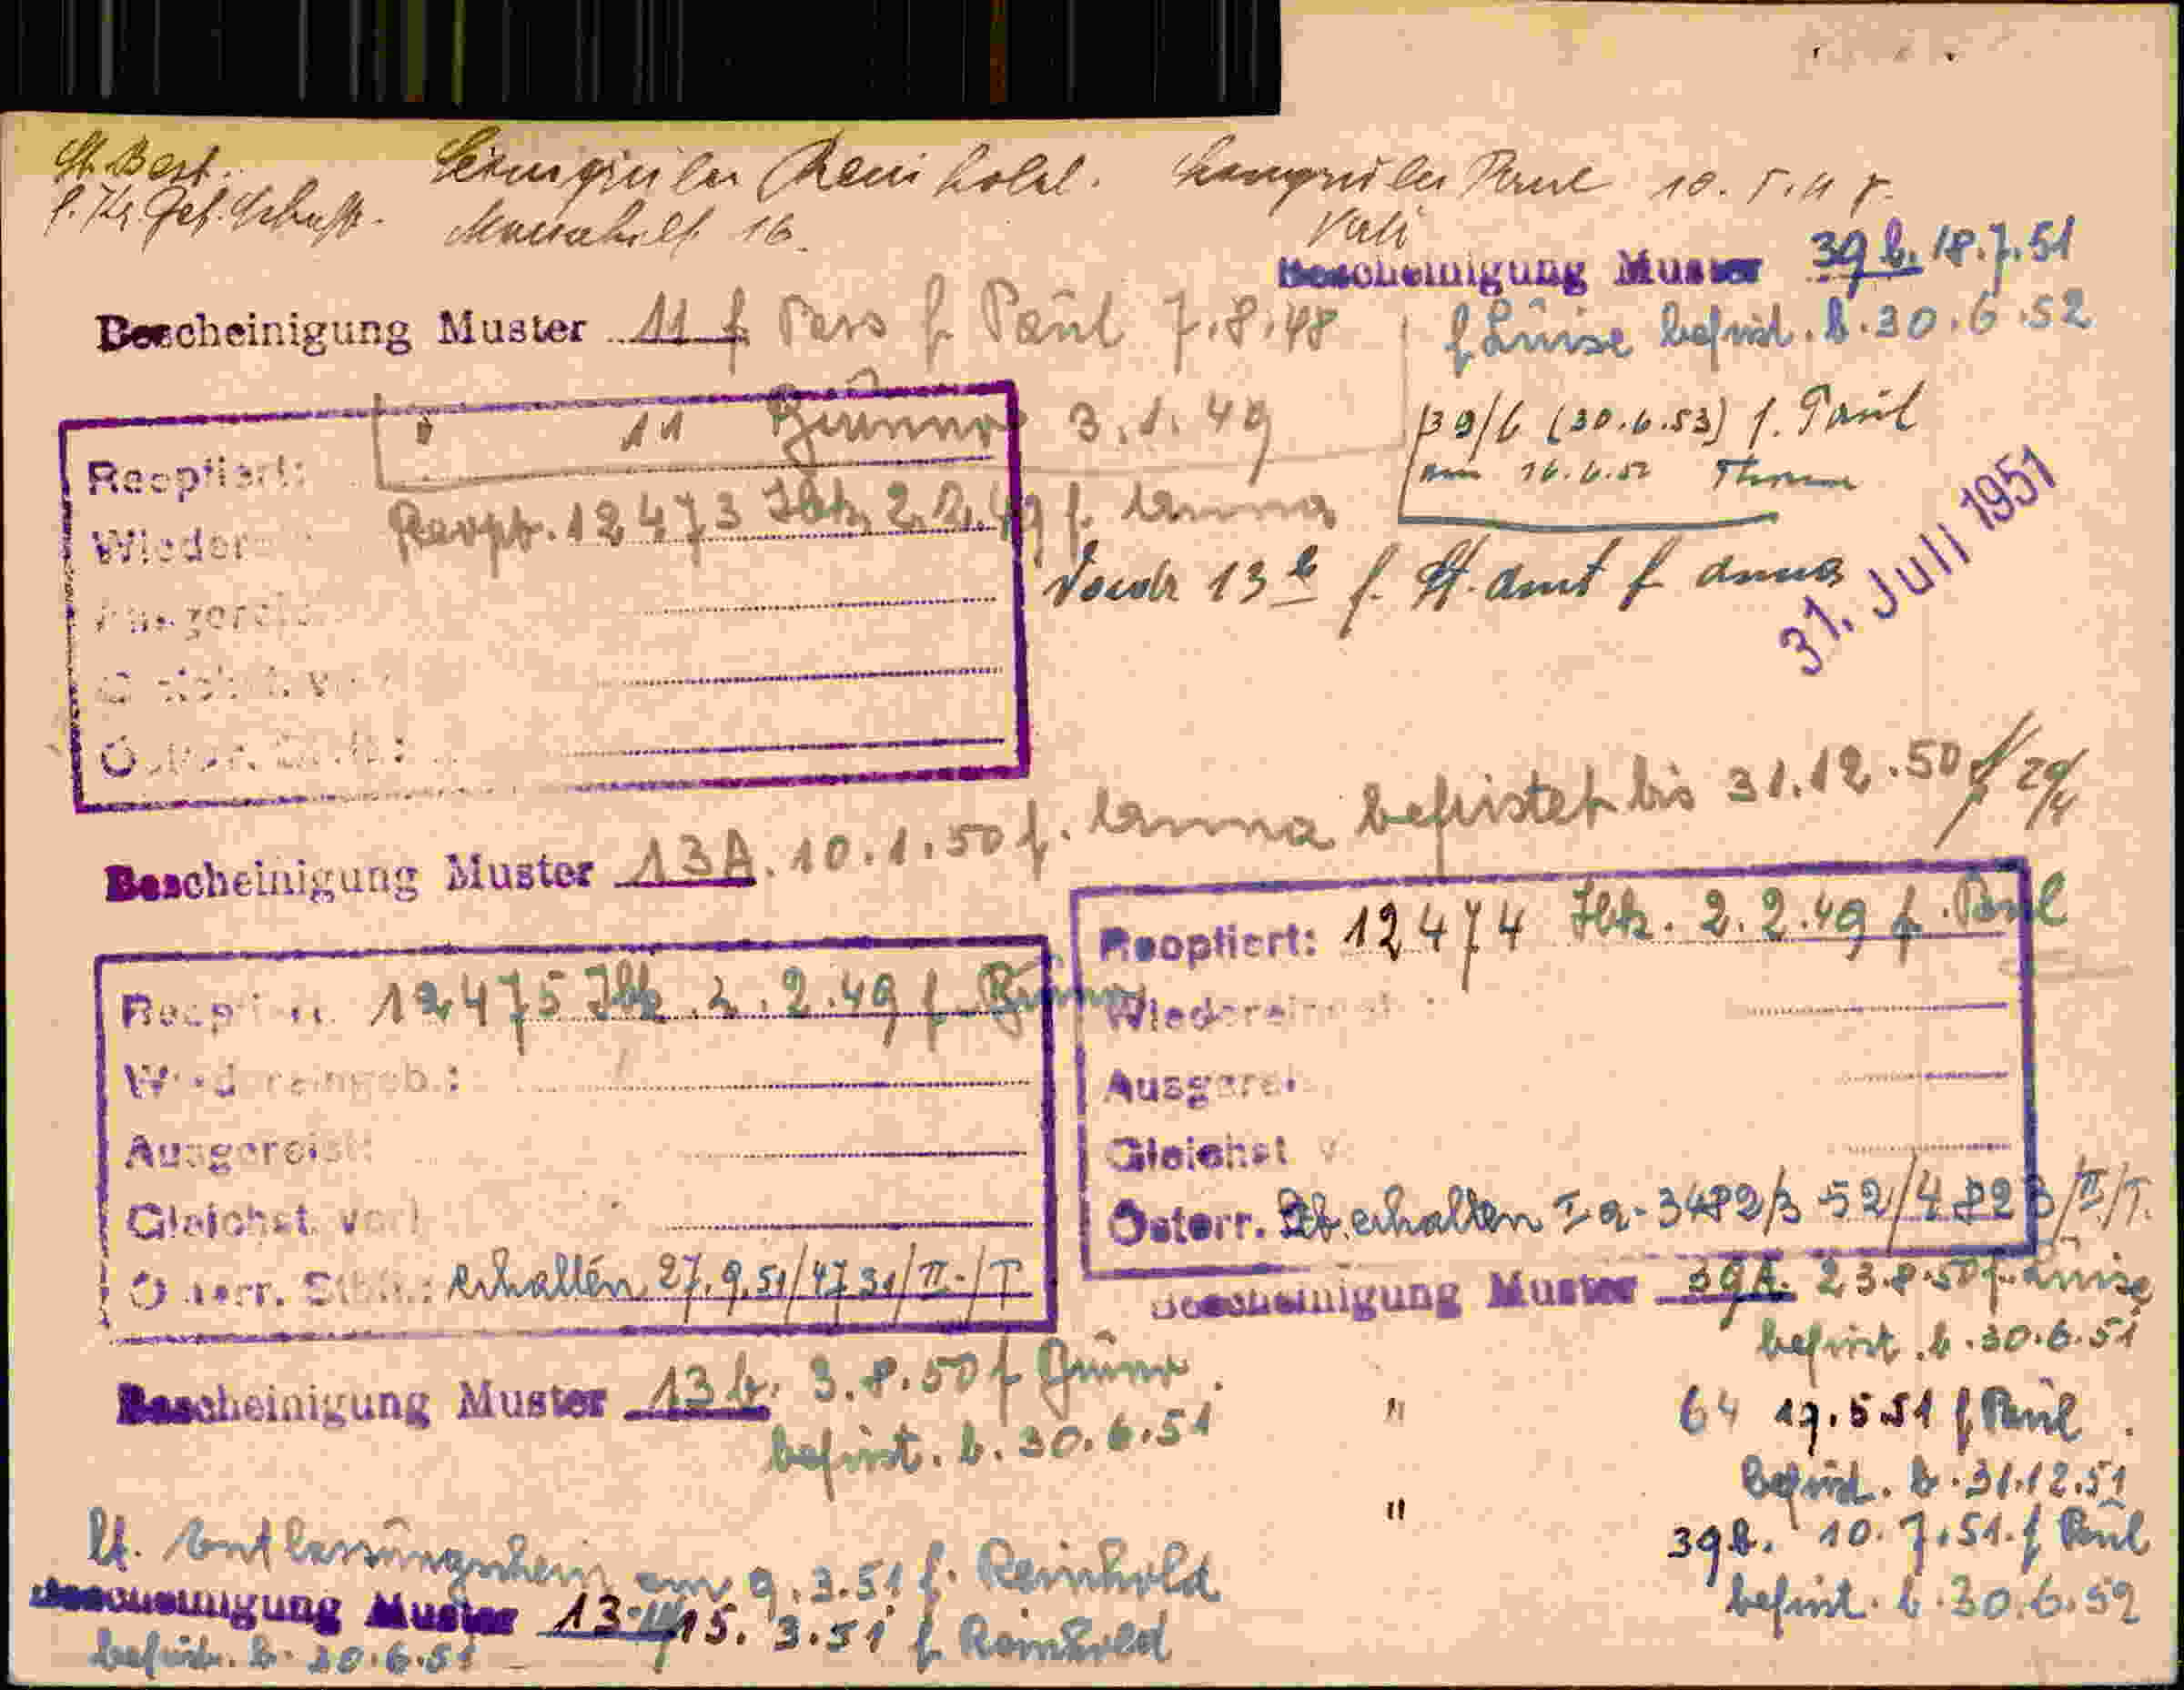 St. Best. Reinhold. Paul 10. 5. 47.
f. Kr. Gef. Schaft. Mariahilf 16.
Bescheinigung Muster 39 b. 18.7.51
Bescheinigung Muster 11 f Pass f Paul 7.8.48
f Luise befrist. b. 30.6.52
" 11 Bruno 3.1.49
39/b (30.6.53) f. Paul
am 16.6.52
Reoptiert:
Reopt. 12473 Ibk. 2.2.49 f. Anna
Wieder
13 b f. St. Amt f Anna
31. Juli 1951
Bescheinigung Muster 13A. 10.1.50 f. Anna befristet bis 31.12.50
Reoptiert: 12474 Ibk. 2.2.49 f. Paul
Wiedereingeb.:
Ausgereist:
Gleichst. v
Österr. Stb. erhalten Ia-3482/3 52/482 B/II/T.
Reoptiert: 12475 Ibk. 2.2.49 f. Bruno
Wiedereingeb.:
Ausgereist:
Gleichst. verl
Österr. Stb.: erhalten 27.9.51/4731/II-/T
Bescheinigung Muster 39A. 23.8.50 f. Luise
befrist. b. 30.6.51
Bescheinigung Muster 13 b. 3.8.50 f Bruno
befrist. b. 30.6.51
" 64 19.5.51 f Paul
befrist. b. 31.12.51
" 39b. 10.7.51. f Paul
befrist. b. 30.6.52
lt. Entlassungschein am 9.3.51 f. Reinhold
Bescheinigung Muster 13 15. 3.51 f Reinhold
befrist. b. 30.6.51